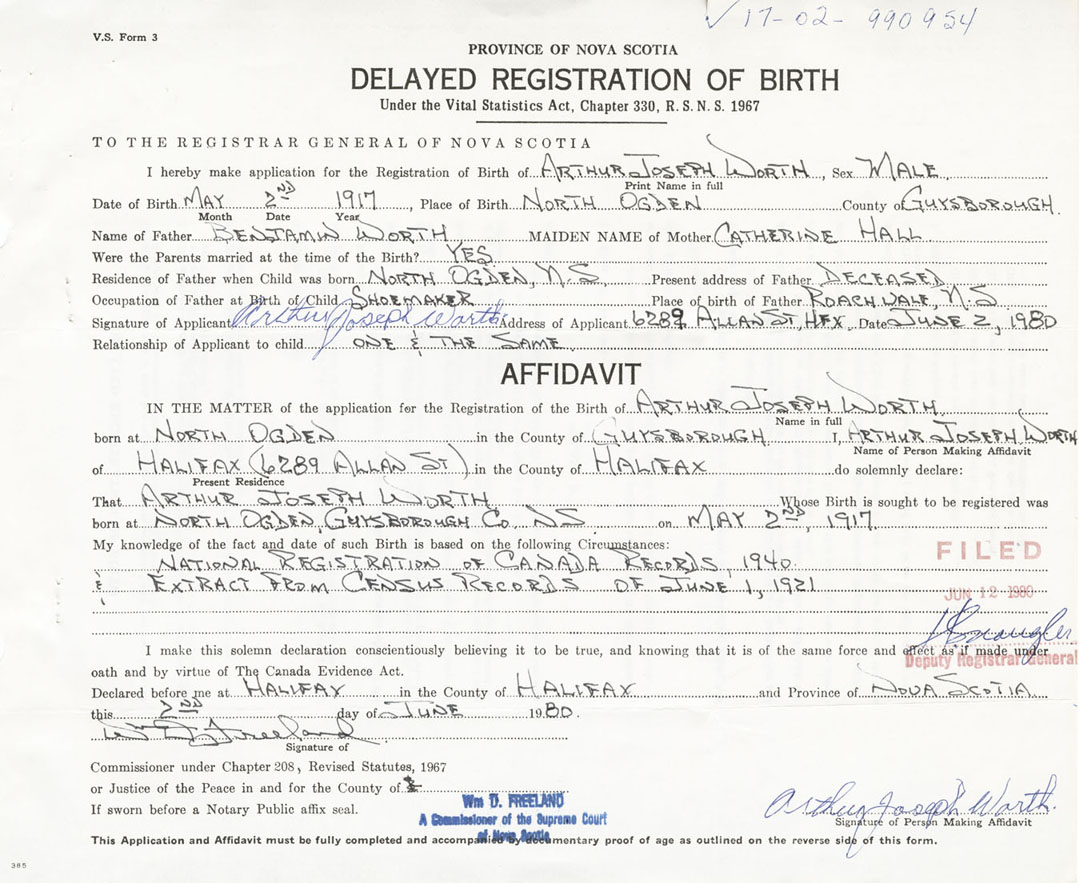 ✓17-02-990954
V.S. Form 3
PROVINCE OF NOVA SCOTIA
DELAYED REGISTRATION OF BIRTH
Under the Vital Statistics Act, Chapter 330, R.S.N.S. 1967
TO THE REGISTRAR GENERAL OF NOVA SCOTIA
I hereby make application for the Registration of Birth of ARTHUR JOSEPH WORTH, Sex MALE
Print Name in full
Date of Birth MAY 2ND 1917, Place of Birth NORTH OGDEN County of GUYSBOROUGH
Month Date Year
Name of Father BENJAMIN WORTH MAIDEN NAME of Mother CATHERINE HALL
Were the Parents married at the time of the Birth? YES
Residence of Father when Child was born NORTH OGDEN, N.S Present address of Father DECEASED
Occupation of Father at Birth of Child SHOEMAKER Place of birth of Father ROACHVALE, N.S
Signature of Applicant Arthur Joseph Worth Address of Applicant 6289 ALLAN ST HFX Date JUNE 2, 1980
Relationship of Applicant to child ONE & THE SAME
AFFIDAVIT
IN THE MATTER of the application for the Registration of the Birth of ARTHUR JOSEPH WORTH
Name in full
born at NORTH OGDEN in the County of GUYSBOROUGH I, ARTHUR JOSEPH WORTH
Name of Person Making Affidavit
of HALIFAX (6289 ALLAN ST) in the County of HALIFAX do solemnly declare:
Present Residence
That ARTHUR JOSEPH WORTH Whose Birth is sought to be registered was
born at NORTH OGDEN, GUYSBOROUGH Co., NS on MAY 2ND, 1917
My knowledge of the fact and date of such Birth is based on the following Circumstances:
NATIONAL REGISTRATION OF CANADA RECORDS, 1940
& EXTRACT FROM CENSUS RECORDS OF JUNE 1, 1921
FILED
JUN 12 1980
Deputy Registrar General
I make this solemn declaration conscientiously believing it to be true, and knowing that it is of the same force and effect as if made under
oath and by virtue of The Canada Evidence Act.
Declared before me at HALIFAX in the County of HALIFAX and Province of NOVA SCOTIA
this 2ND day of JUNE 1980.
Wm D Freeland
Signature of
Commissioner under Chapter 208, Revised Statutes, 1967
or Justice of the Peace in and for the County of
If sworn before a Notary Public affix seal.
Wm D. FREELAND
A Commissioner of the Supreme Court
of Nova Scotia
Arthur Joseph Worth.
Signature of Person Making Affidavit
This Application and Affidavit must be fully completed and accompanied by documentary proof of age as outlined on the reverse side of this form.
385